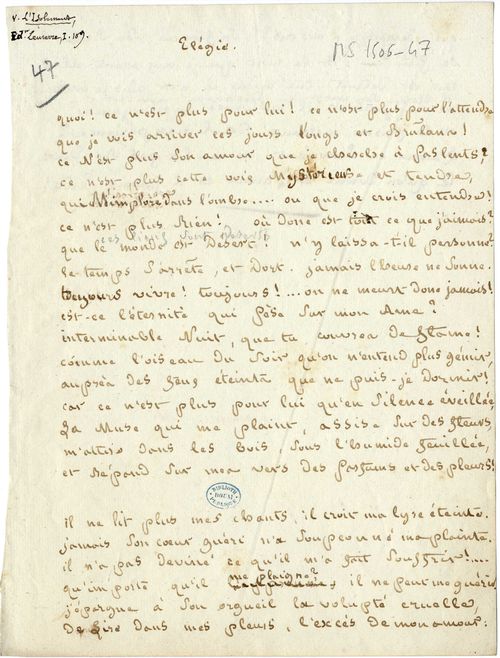 v. L'Isolement,
Edon Lemerre, I. 109.
47
Elégie.
MS 1505-47
quoi! ce n'est plus pour lui! ce n'est plus pour l'attendre
que je vois arriver ces jours longs et Brulans!
ce N'est plus son amour que je cherche à pas lents?
ce n'est plus cette voix Mystérieuse et tendre,
qui M'implore dans l'ombre.... ou que je crois entendre!
ce n'est plus Rien! où donc est tout ce que j'aimais?
que le monde est Desert! n'y laissa-t-il personne?
le temps s'arrête, et Dort. jamais l'heure ne sonne.
toujours vivre! toujours!.... on ne meurt donc jamais!
est-ce l'éternité qui pèse sur mon Ame?
interminable Nuit, que tu couvres de flame!
comme l'oiseau du soir qu'on n'entend plus gémir,
auprès des feux éteints que ne puis-je Dormir!
car ce n'est plus pour lui qu'en silence éveillée
La Muse qui me plaint, assise sur des fleurs
m'attire dans les bois, sous l'humide feuillée,
et Répand sur mes vers des Parfums et des pleurs!
BIBLIOTH. DOUAI PUBLIQUE
il ne lit plus mes chants, il croit ma lyre éteinte.
jamais son cœur guéri n'a soupçonné ma plainte.
il n'a pas Deviné ce qu'il m'a fait souffrir!....
qu'importe qu'il me plaigne? il ne peut me guérir
j'épargne à son orgueil la volupté cruelle,
De lire dans mes pleurs, l'excès de mon amour: